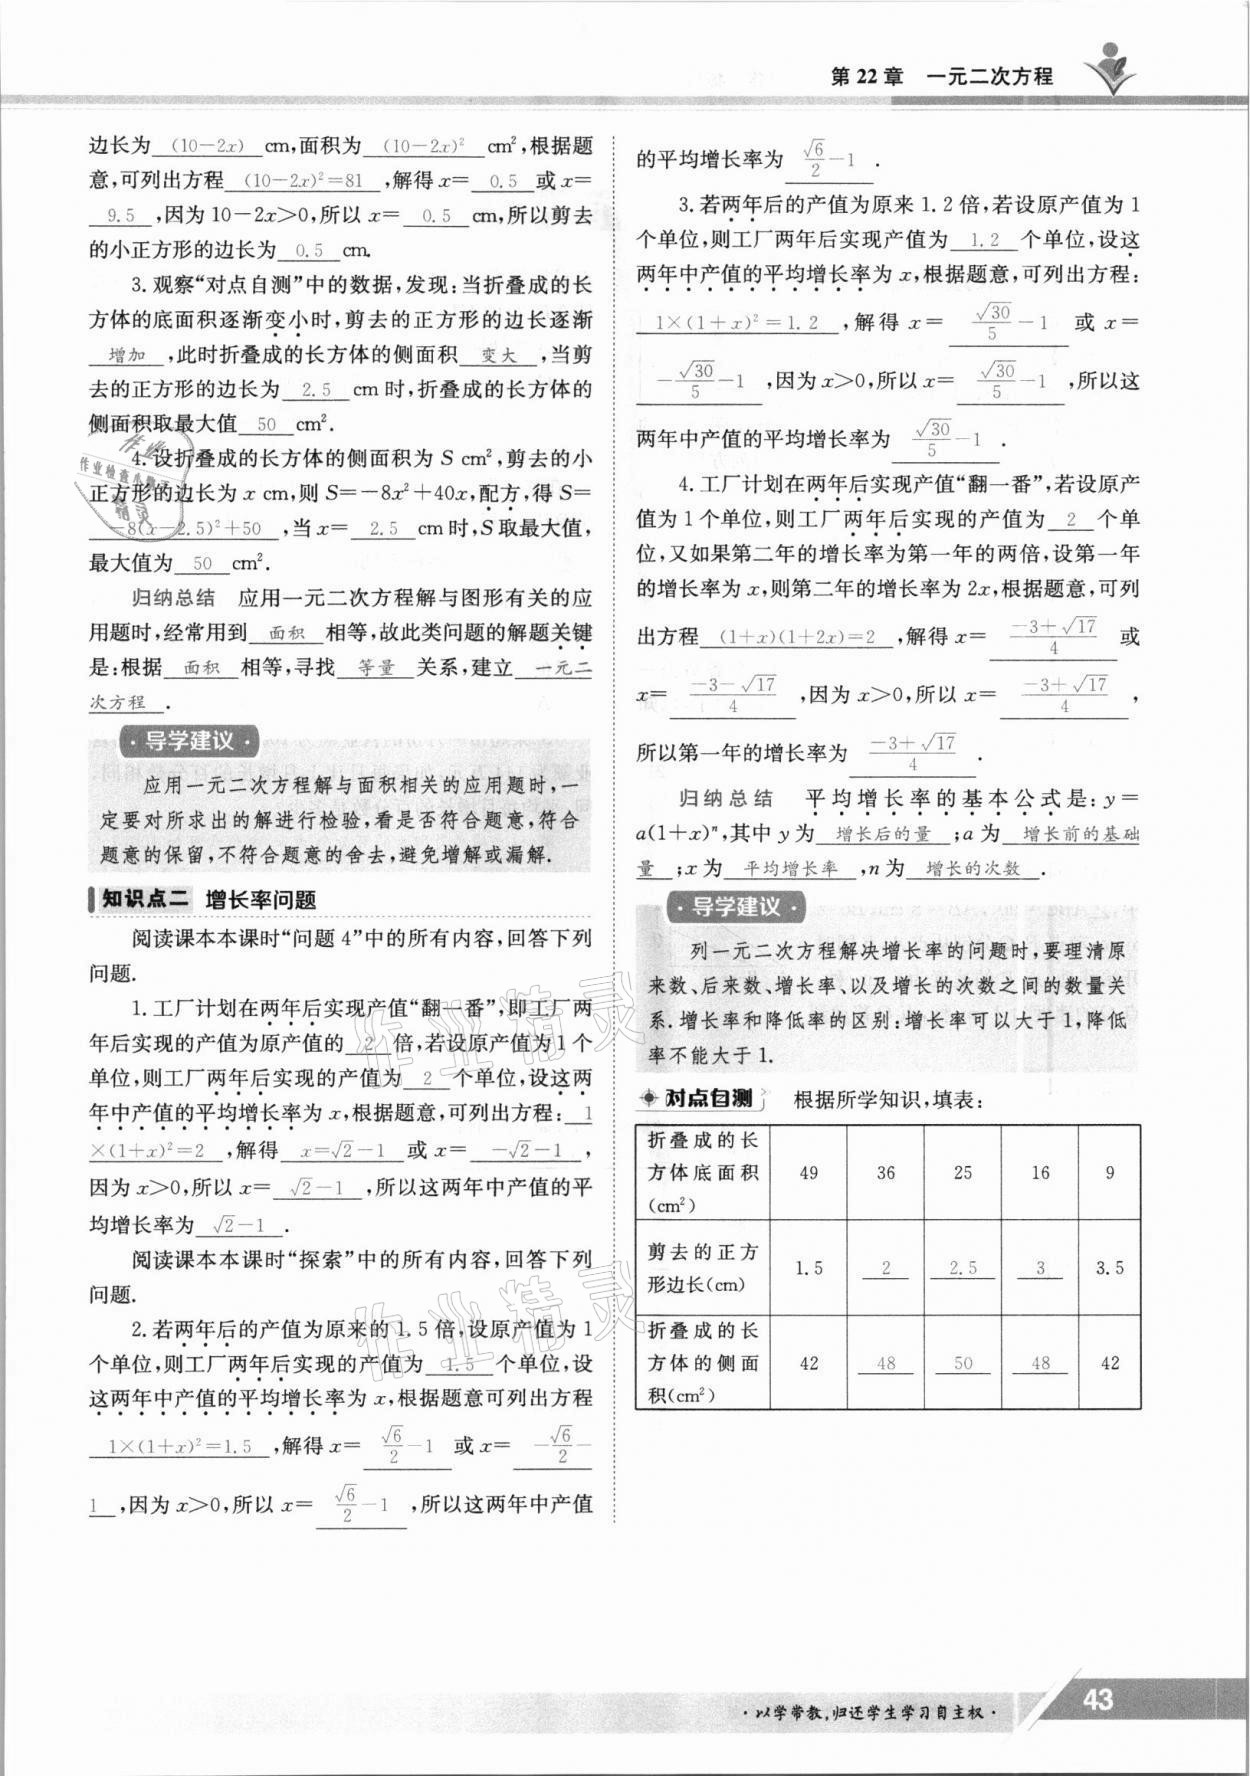 第22章 一元二次方程
边长为 (10-2x) cm,面积为 (10-2x)² cm²,根据题
意,可列出方程 (10-2x)²=81 ,解得 x= 0.5 或 x=
9.5 ,因为 10-2x>0,所以 x= 0.5 cm,所以剪去
的小正方形的边长为 0.5 cm.
3. 观察“对点自测”中的数据,发现:当折叠成的长
方体的底面积逐渐变小时,剪去的正方形的边长逐渐
增加 ,此时折叠成的长方体的侧面积 变大 ,当剪
去的正方形的边长为 2.5 cm 时,折叠成的长方体的
侧面积取最大值 50 cm².
4. 设折叠成的长方体的侧面积为 S cm²,剪去的小
正方形的边长为 x cm,则 S=-8x²+40x,配方,得 S=
-8(x-2.5)²+50 ,当 x= 2.5 cm 时,S 取最大值,
最大值为 50 cm².
归纳总结 应用一元二次方程解与图形有关的应
用题时,经常用到 面积 相等,故此类问题的解题关键
是:根据 面积 相等,寻找 等量 关系,建立 一元二
次方程 .
·导学建议·
应用一元二次方程解与面积相关的应用题时,一
定要对所求出的解进行检验,看是否符合题意,符合
题意的保留,不符合题意的舍去,避免增解或漏解.
知识点二 增长率问题
阅读课本本课时“问题 4”中的所有内容,回答下列
问题.
1. 工厂计划在两年后实现产值“翻一番”,即工厂两
年后实现的产值为原产值的 2 倍,若设原产值为 1 个
单位,则工厂两年后实现的产值为 2 个单位,设这两
年中产值的平均增长率为 x,根据题意,可列出方程: 1
×(1+x)²=2 ,解得 x=√2-1 或 x= -√2-1 ,
因为 x>0,所以 x= √2-1 ,所以这两年中产值的平
均增长率为 √2-1 .
阅读课本本课时“探索”中的所有内容,回答下列
问题.
2. 若两年后的产值为原来的 1.5 倍,设原产值为 1
个单位,则工厂两年后实现的产值为 1.5 个单位,设
这两年中产值的平均增长率为 x,根据题意可列出方程
1×(1+x)²=1.5 ,解得 x= √6/2-1 或 x= -√6/2-
1 ,因为 x>0,所以 x= √6/2-1 ,所以这两年中产值
的平均增长率为 √6/2-1 .
3. 若两年后的产值为原来 1.2 倍,若设原产值为 1
个单位,则工厂两年后实现产值为 1.2 个单位,设这
两年中产值的平均增长率为 x,根据题意,可列出方程:
1×(1+x)²=1.2 ,解得 x= √30/5-1 或 x=
-√30/5-1 ,因为 x>0,所以 x= √30/5-1 ,所以这
两年中产值的平均增长率为 √30/5-1 .
4. 工厂计划在两年后实现产值“翻一番”,若设原产
值为 1 个单位,则工厂两年后实现的产值为 2 个单
位,又如果第二年的增长率为第一年的两倍,设第一年
的增长率为 x,则第二年的增长率为 2x,根据题意,可列
出方程 (1+x)(1+2x)=2 ,解得 x= (-3+√17)/4 或
x= (-3-√17)/4 ,因为 x>0,所以 x= (-3+√17)/4 ,
所以第一年的增长率为 (-3+√17)/4 .
归纳总结 平均增长率的基本公式是:y=
a(1+x)ⁿ,其中 y 为 增长后的量 ;a 为 增长前的基础
量 ;x 为 平均增长率 ,n 为 增长的次数 .
·导学建议·
列一元二次方程解决增长率的问题时,要理清原
来数、后来数、增长率、以及增长的次数之间的数量关
系.增长率和降低率的区别:增长率可以大于 1,降低
率不能大于 1.
对点自测 根据所学知识,填表:
折叠成的长
方体底面积
(cm²)
49 36 25 16 9
剪去的正方
形边长(cm)
1.5 2 2.5 3 3.5
折叠成的长
方体的侧面
积(cm²)
42 48 50 48 42
·以学带教,归还学生学习自主权·
43
作业
作业检查小
精灵
作业精灵
作业精灵